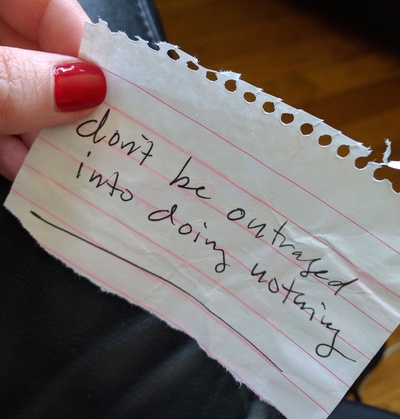 don't be outraged
into doing nothing